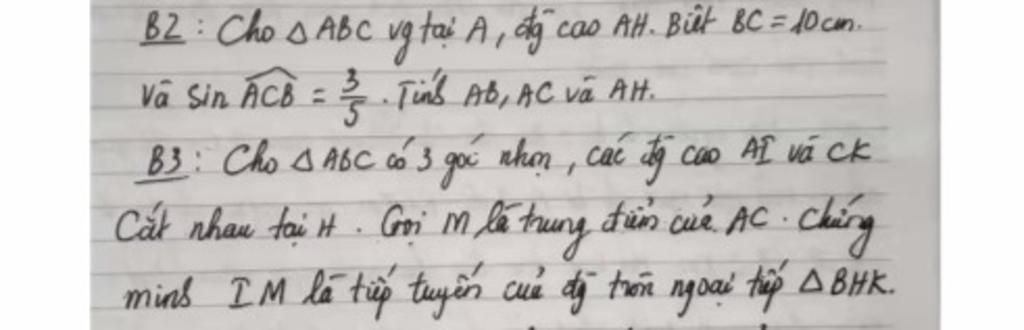 B2 : Cho △ ABC vg tại A, đg cao AH. Biết BC = 10cm.
Và sin \widehat{ACB} = 3/5 . Tính AB, AC và AH.
B3 : Cho △ ABC có 3 góc nhọn, các đg cao AI và CK
Cắt nhau tại H . Gọi M là trung điểm của AC . Chứng
minh IM là tiếp tuyến của đg tròn ngoại tiếp △ BHK.